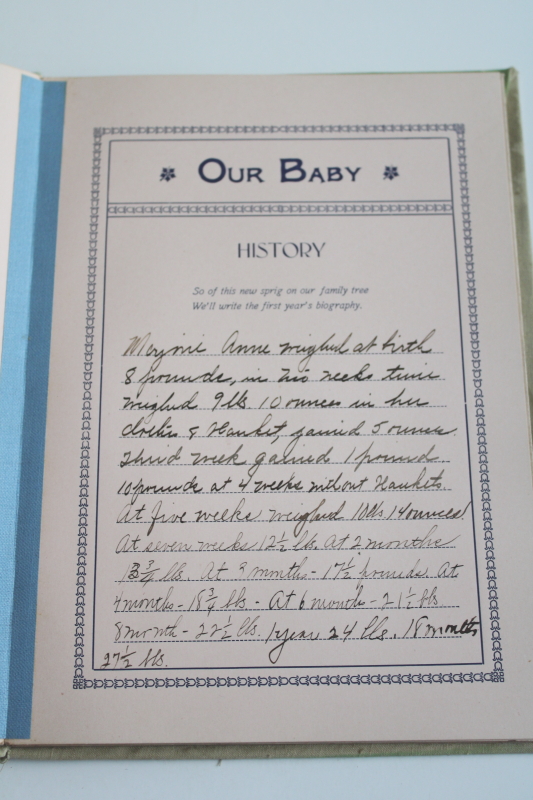 OUR BABY
HISTORY
So of this new sprig on our family tree
We'll write the first year's biography.
Marjorie Anne weighed at birth
8 pounds, in two weeks time
weighed 9 lbs. 10 ounces in her
clothes & blanket, gained 5 ounces.
Third week gained 1 pound
10 pounds at 4 weeks without blankets.
At five weeks weighed 10 lbs 14 ounces!
At seven weeks 12 1/2 lbs. At 2 months
13 3/4 lbs. At 3 months - 17 1/2 pounds. At
4 months - 18 3/4 lbs - At 6 month - 21 1/2 lbs
8 month - 22 1/2 lbs. 1 year 24 lbs. 18 months
27 1/2 lbs.